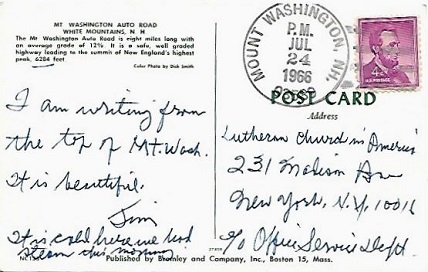 MT WASHINGTON AUTO ROAD
WHITE MOUNTAINS, N H
The Mt Washington Auto Road is eight miles long with
an average grade of 12%. It is a safe, well graded
highway leading to the summit of New England's highest
peak, 6284 feet
Color Photo by Dick Smith
I am writing from
the top of Mt. Wash.
It is beautiful.
Jim
It is cold here we had
steam this morning
MOUNT WASHINGTON, NH.
P.M.
JUL
24
1966
4¢
POST CARD
Address
Lutheran Church in America
231 Madison Ave
New York, N.Y, 10016
c/o Office Service Dept.
Published by Bromley and Company, Inc., Boston 15, Mass.